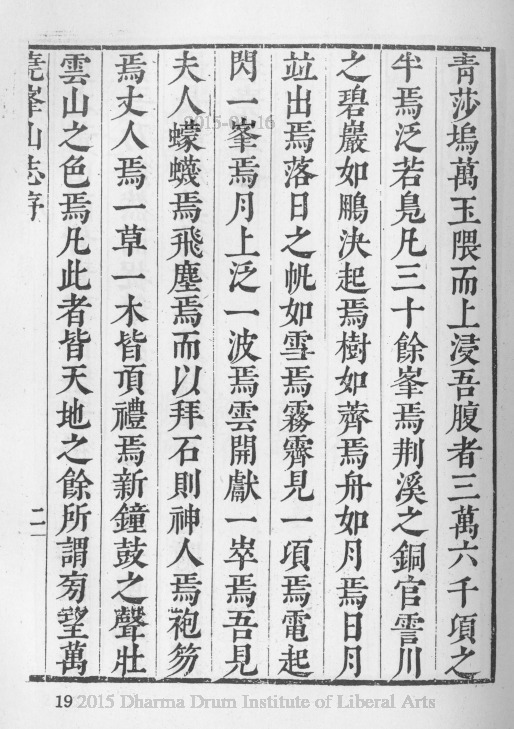 青莎塢萬玉隈而上浸吾腹者三萬六千項之
半焉泛若鳧凡三十餘峯焉荆溪之銅官雲川
之碧巖如鵬決起焉樹如薺焉舟如月焉日月
竝出焉落日之帆如雪焉霧霽見一項焉電起
閃一峯焉月上泛一波焉雲開獻一崒焉吾見
夫人蠓蠛焉飛塵焉而以拜石則神人焉袍笏
焉丈人焉一草一木皆頂禮焉新鐘鼓之聲壯
雲山之色焉凡此者皆天地之餘所謂旁望萬
堯峯山志序
二
2015-01-16
19 2015 Dharma Drum Institute of Liberal Arts